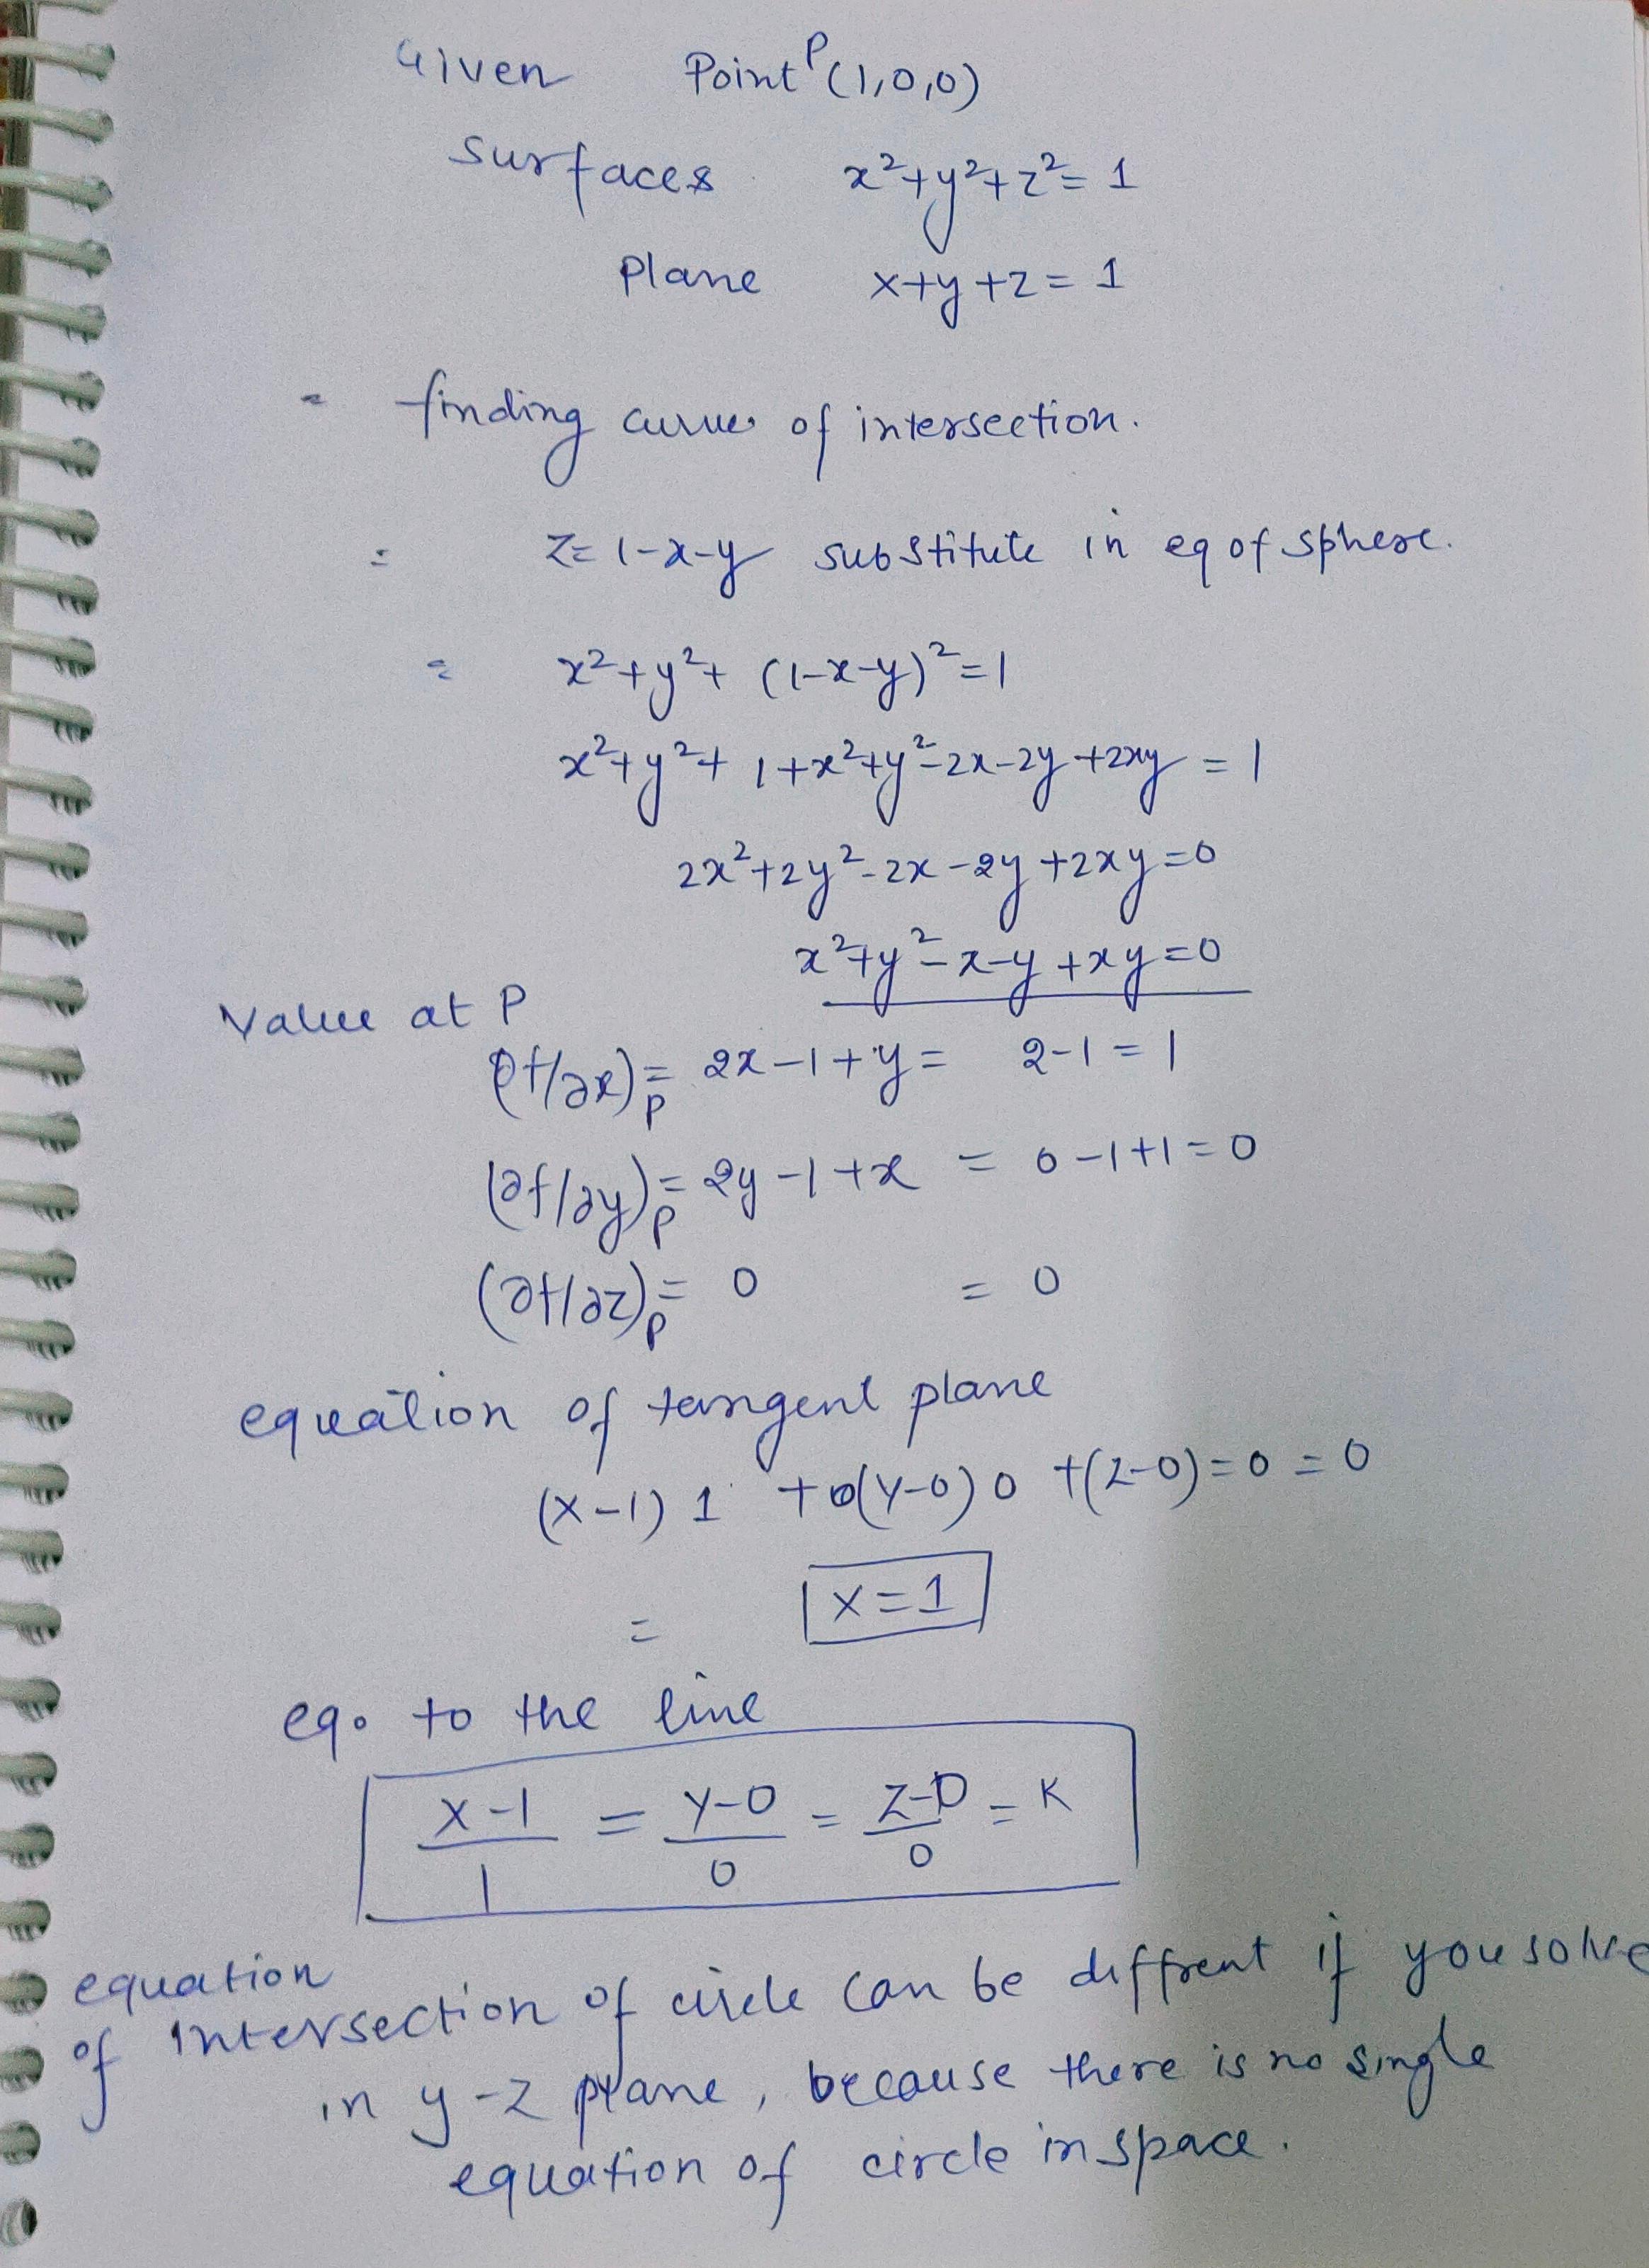 Given Point P(1,0,0)
Surfaces x²+y²+z²=1
Plane x+y+z=1
= finding curve of intersection.
= z=1-x-y substitute in eq of sphere.
= x²+y²+(1-x-y)²=1
x²+y²+1+x²+y²-2x-2y+2xy=1
2x²+2y²-2x-2y+2xy=0
x²+y²-x-y+xy=0
Value at P
(∂f/∂x)P = 2x-1+y = 2-1=1
(∂f/∂y)P = 2y-1+x = 0-1+1=0
(∂f/∂z)P = 0 = 0
equation of tangent plane
(x-1) 1 + 0(y-0) 0 + (z-0)=0=0
= x=1
eq. to the line
(x-1)/1 = (y-0)/0 = (z-0)/0 = K
equation
of intersection of circle can be diffrent if you solve
in y-z plane, because there is no single
equation of circle in space.